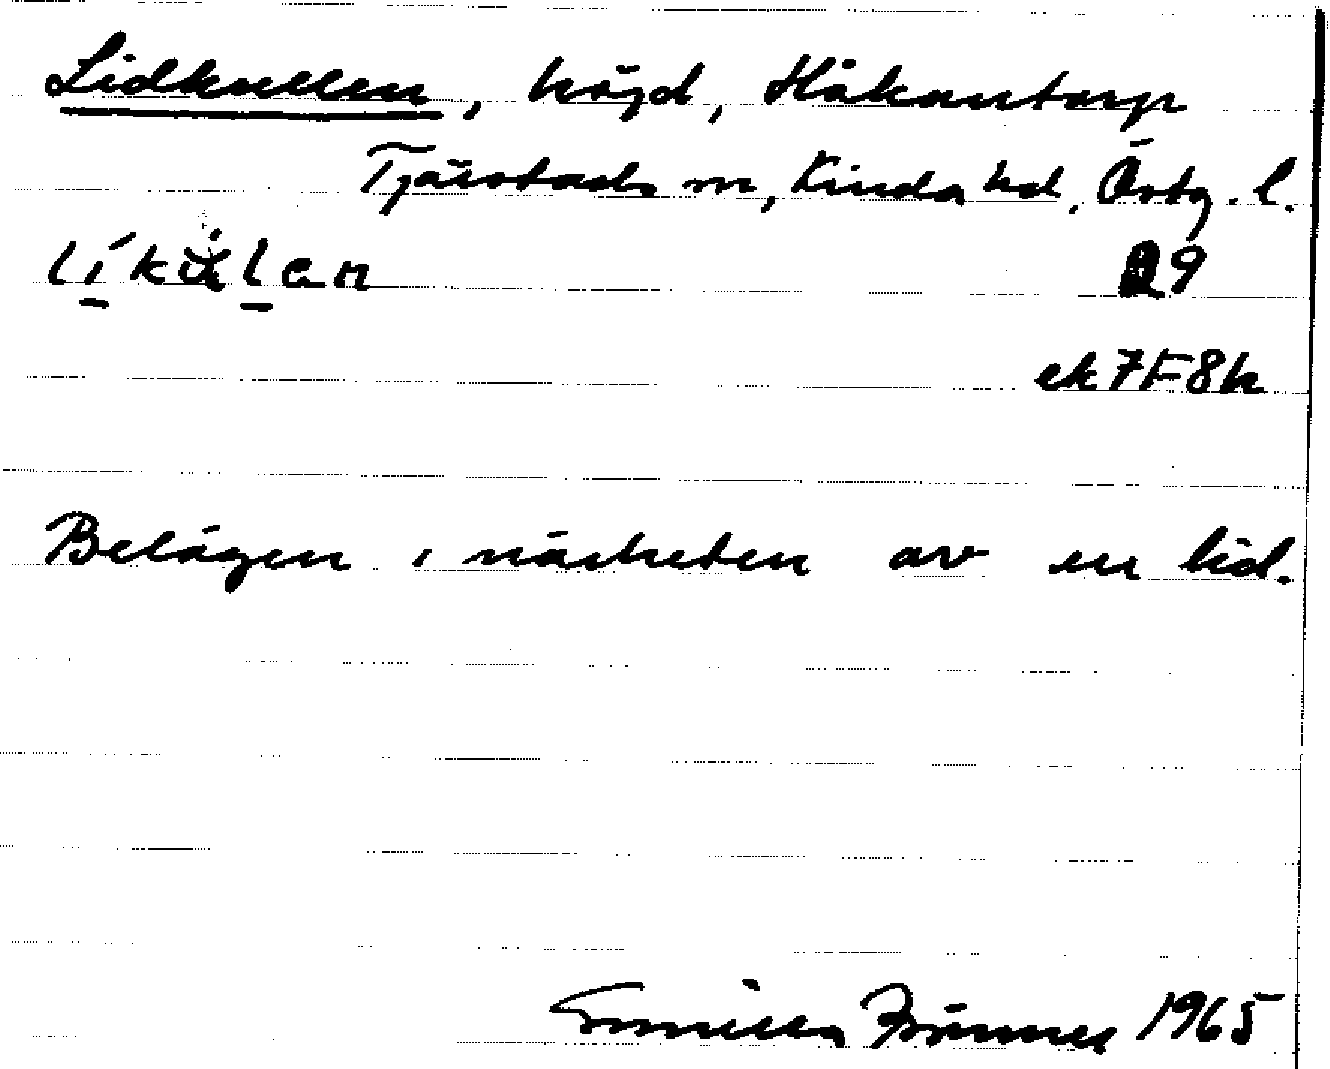 Lidkullen, höjd, Håkantorp
Tjärstads sn, Kinda hd, Östg. l.
R9
ek7F8h
Belägen i närheten av en lid.
Gunilla 1965